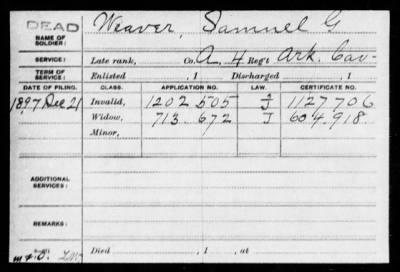 DEAD
NAME OF SOLDIER: Weaver, Samuel G
SERVICE: Late rank, Co. A, 4 Reg't Ark. Cav-
TERM OF SERVICE: Enlisted , 1 Discharged , 1
DATE OF FILING. CLASS. APPLICATION NO. LAW. CERTIFICATE NO.
1897 Dec 21 Invalid, 1202 505 J 1127706
Widow, 713.672 J 604.918.
Minor,
ADDITIONAL SERVICES:
REMARKS:
Died , 1 , at